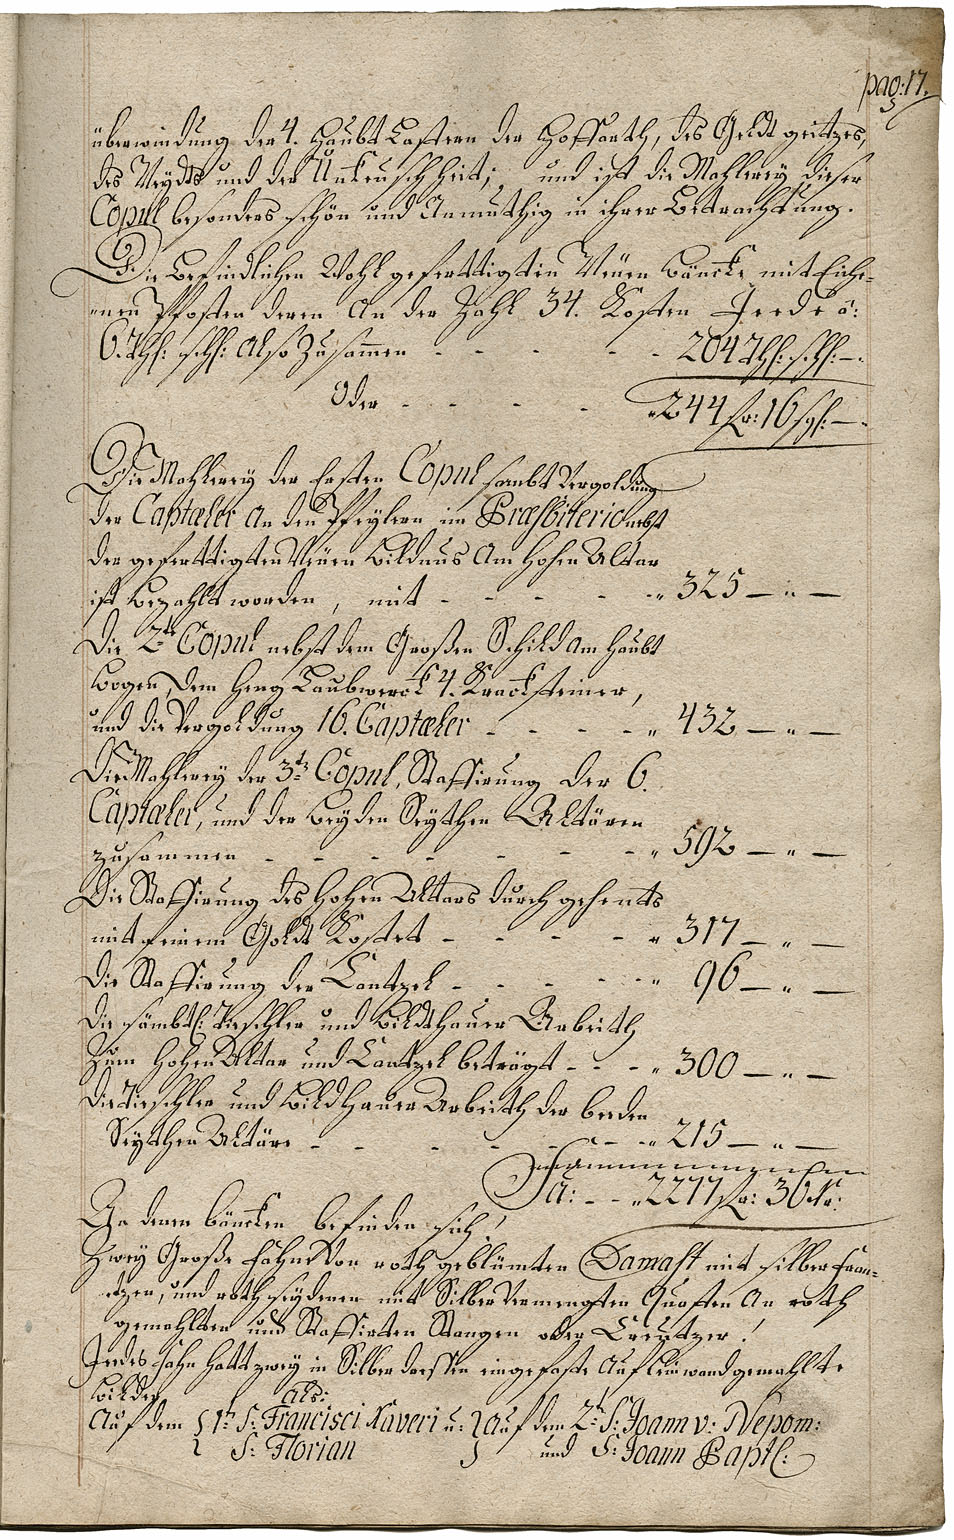 pag: 17.
überwindung der 4. Haubt Lastern der Hoffarth, des Geldt geitzes,
des Neydts und der Unkeuschheit; und ist die Mahlerey dieser
Copul besonders schön und Anmuthig in ihrer Betrachtung.
Die Befindlichen Wohl geferttigten Neuen Bäncke mit Eiche-
nen Pfosten deren An der Zahl 34. Kosten Jede â:
6. thl: schl: also Zusammen - - - - - - 204 thl: schl: —.
Oder - - - - - „ 244 fl: 16 sgl: —.
Die Mahlerey der Ersten Copul sambt Vergoldung
der Captæler An den Pfeylern im Præsbiterio nebst
der gefertigten Neuen Bildnus Am Hohen Altar
ist Bezahlt worden, mit - - - - - „ 325 — „ —
Die 2te Copul nebst dem Großen Schild Am Haubt
Bogen, dem Heng Laubwerck 4. Kracksteiner,
und die Vergoldung 16. Captæler - - - - „ 432 — „ —
Die Mahlerey der 3t Copul, Staffirung der 6.
Captæler, und der Beyden Seythen Altären
zusammen - - - - - - - „ 592 — „ —
Die Staffirung des Hohen Altars durch gehents
mit feinem Goldt Kostet - - - - - „ 317 — „ —
Die Staffirung der Cantzel - - - - - „ 96 — „ —
Die sämbtl: Tieschler und Bildthauer Arbeith
Zum Hohen Altar und Cantzel beträgt - - - „ 300 — „ —
Die Tieschler und Bildhauer Arbeith der beeden
Seythen Altäre - - - - - - - „ 215 — „ —
Sa: - - „ 2277 fl: 30 Kr:
In denen bäncken befinden sich!
Zwey Große Fahne von roth geblümten Damast mit silber Fran-
tzen, und roth seydenen mit Silber Vermengten Quasten An roth
gemahlten und Staffirten Stangen oder Creutzer!
Jedes Fahn hatt zwey in Silber dressen eingefaste Auf Leinwand gemahlte
Bilder, als:
Auf dem { 1t S: Francisci Xaveri u: } Auf dem 2t S: Joann v: Nepom:
{ S: Florian } und S: Joann Baptl: